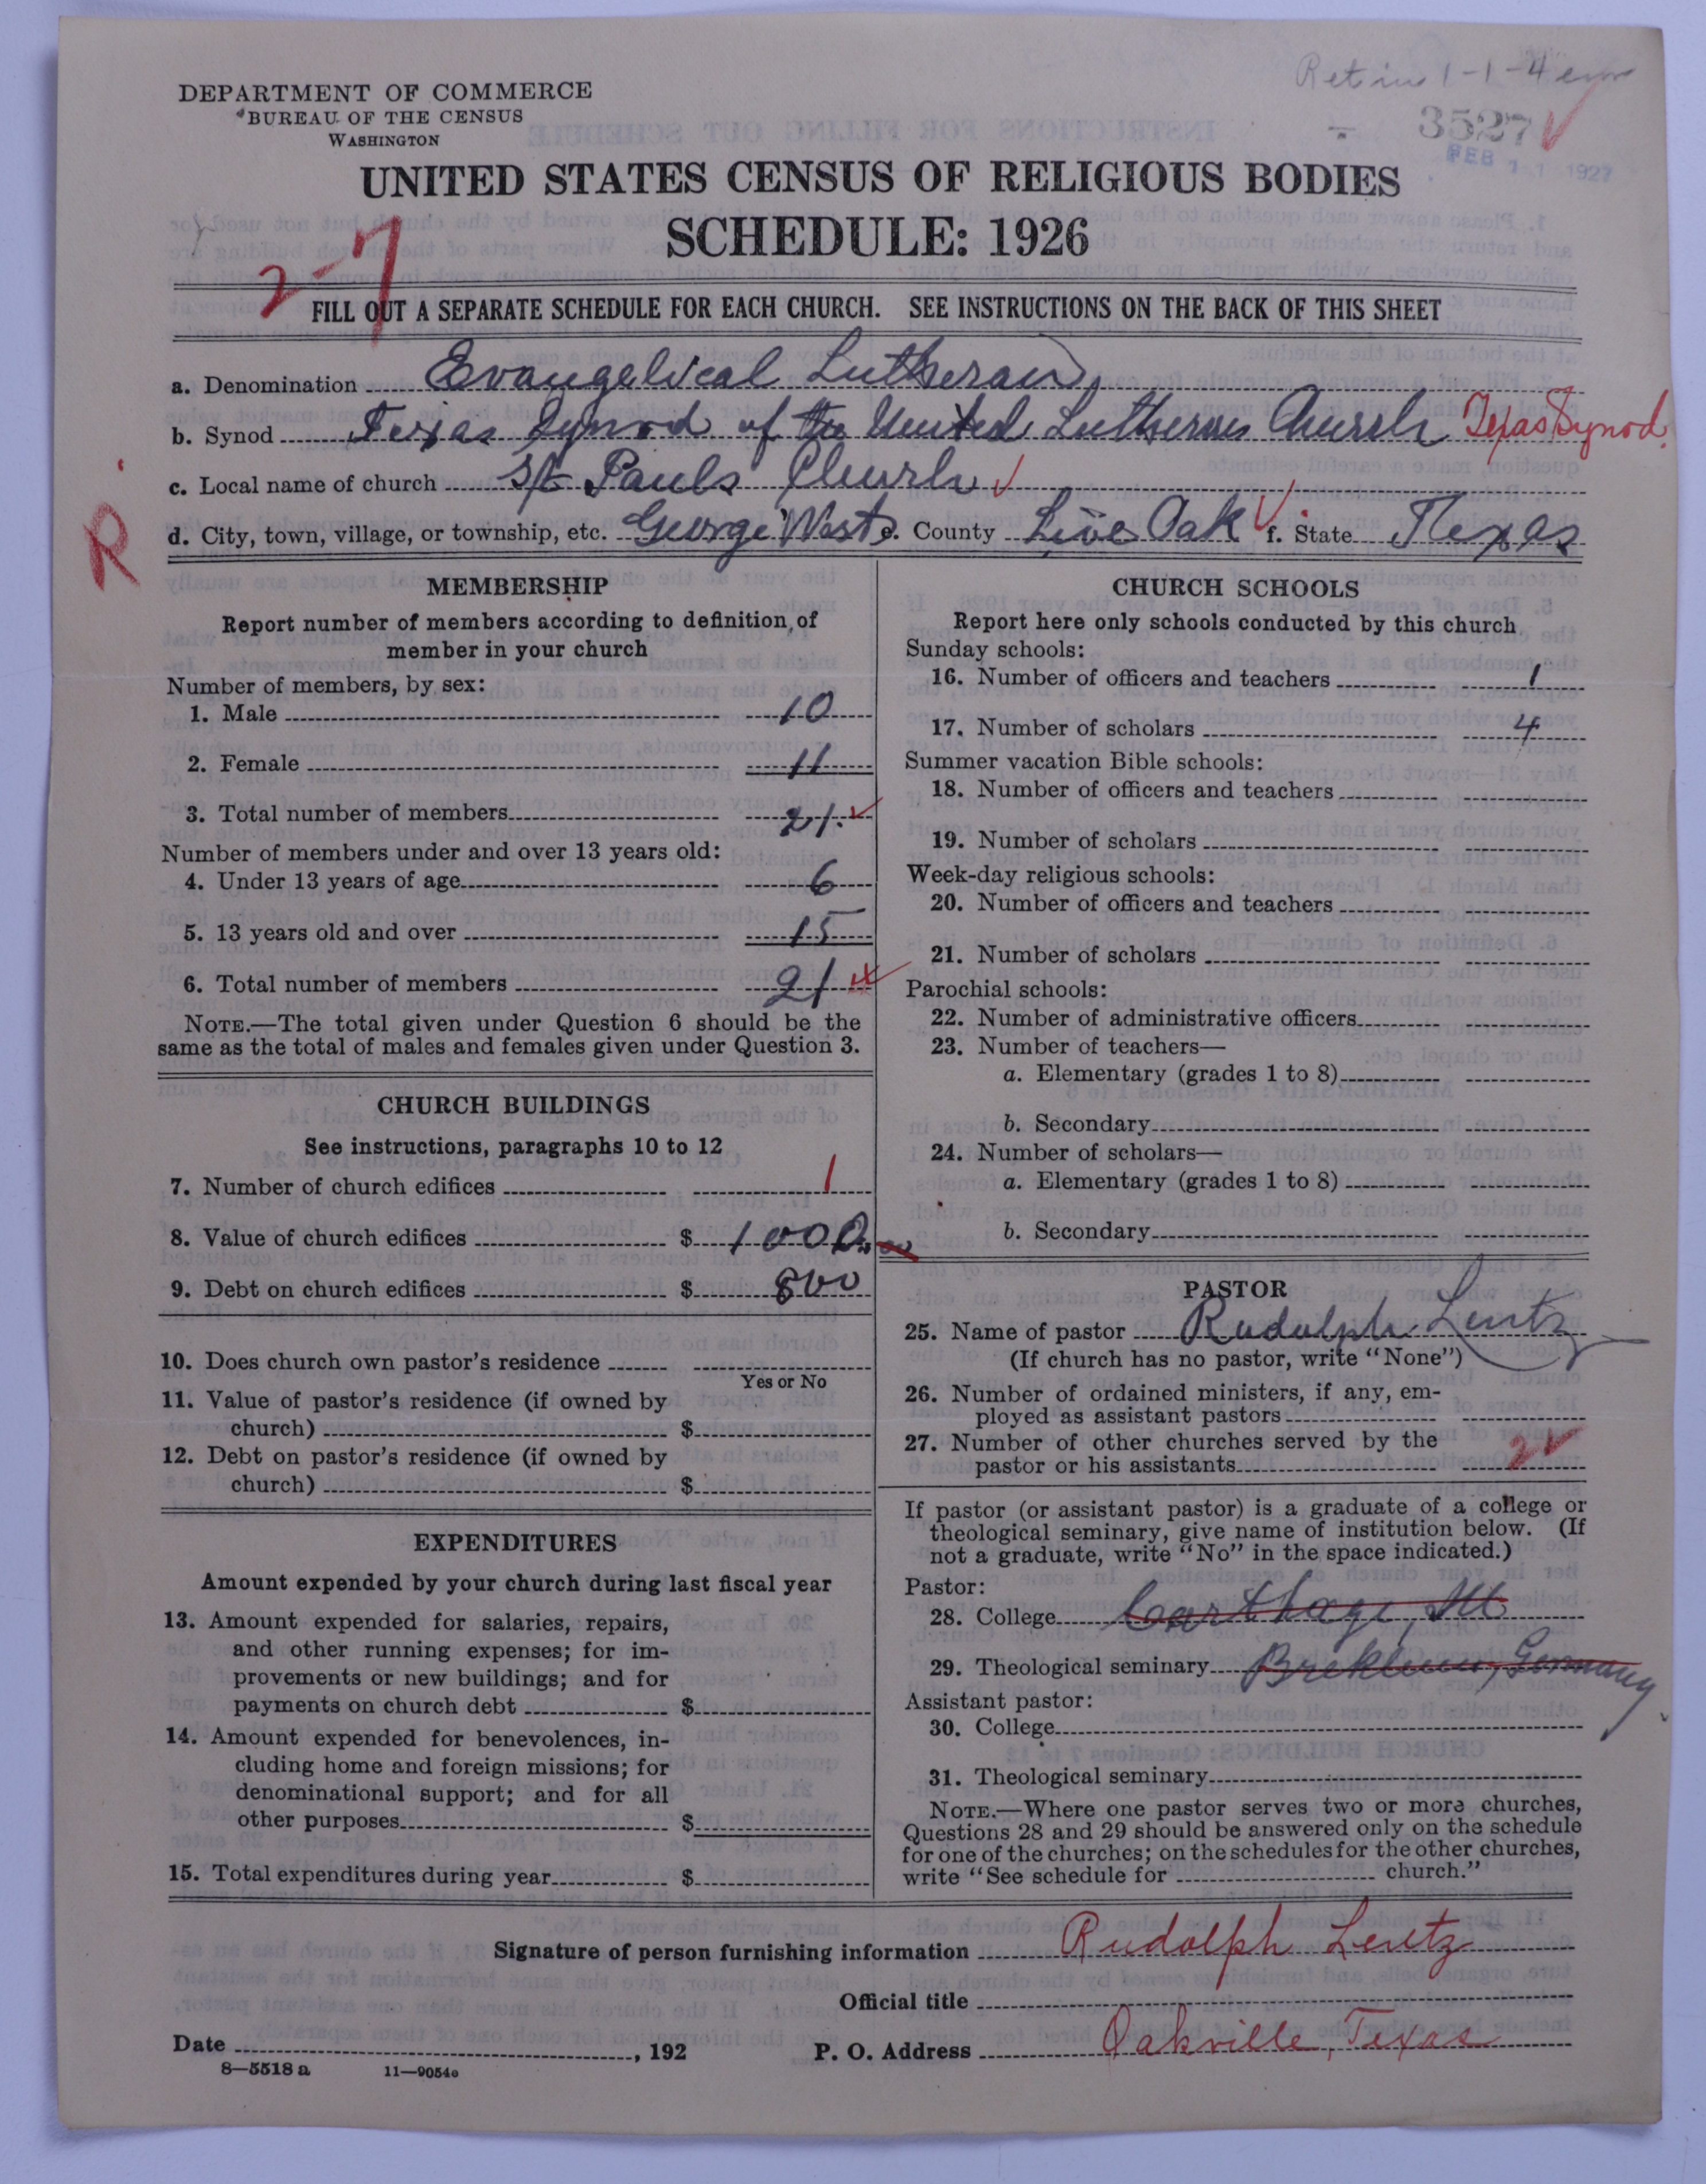 Ret in 1-1-4
DEPARTMENT OF COMMERCE
BUREAU OF THE CENSUS
WASHINGTON
3527
FEB 11 1927
UNITED STATES CENSUS OF RELIGIOUS BODIES
SCHEDULE: 1926
2-7
FILL OUT A SEPARATE SCHEDULE FOR EACH CHURCH. SEE INSTRUCTIONS ON THE BACK OF THIS SHEET
a. Denomination Evangelical Lutheran
b. Synod Texas Synod of the United Lutheran Church Texas Synod
c. Local name of church St Pauls Church
d. City, town, village, or township, etc. George West e. County Live Oak f. State Texas
R
MEMBERSHIP
Report number of members according to definition of
member in your church
Number of members, by sex:
1. Male 10
2. Female 11
3. Total number of members 21.
Number of members under and over 13 years old:
4. Under 13 years of age 6
5. 13 years old and over 15
6. Total number of members 21
NOTE.—The total given under Question 6 should be the
same as the total of males and females given under Question 3.
CHURCH BUILDINGS
See instructions, paragraphs 10 to 12
7. Number of church edifices 1
8. Value of church edifices $ 1000.00
9. Debt on church edifices $ 800
10. Does church own pastor's residence
Yes or No
11. Value of pastor's residence (if owned by
church) $
12. Debt on pastor's residence (if owned by
church) $
EXPENDITURES
Amount expended by your church during last fiscal year
13. Amount expended for salaries, repairs,
and other running expenses; for im-
provements or new buildings; and for
payments on church debt $
14. Amount expended for benevolences, in-
cluding home and foreign missions; for
denominational support; and for all
other purposes $
15. Total expenditures during year $
CHURCH SCHOOLS
Report here only schools conducted by this church
Sunday schools:
16. Number of officers and teachers 1
17. Number of scholars 4
Summer vacation Bible schools:
18. Number of officers and teachers
19. Number of scholars
Week-day religious schools:
20. Number of officers and teachers
21. Number of scholars
Parochial schools:
22. Number of administrative officers
23. Number of teachers—
a. Elementary (grades 1 to 8)
b. Secondary
24. Number of scholars—
a. Elementary (grades 1 to 8)
b. Secondary
PASTOR
25. Name of pastor Rudolph Lentz
(If church has no pastor, write "None")
26. Number of ordained ministers, if any, em-
ployed as assistant pastors
27. Number of other churches served by the
pastor or his assistants 2
If pastor (or assistant pastor) is a graduate of a college or
theological seminary, give name of institution below. (If
not a graduate, write "No" in the space indicated.)
Pastor:
28. College Carthage, Ill
29. Theological seminary Breklum, Germany
Assistant pastor:
30. College
31. Theological seminary
NOTE.—Where one pastor serves two or more churches,
Questions 28 and 29 should be answered only on the schedule
for one of the churches; on the schedules for the other churches,
write "See schedule for church."
Signature of person furnishing information Rudolph Lentz
Official title
Date , 192
P. O. Address Oakville, Texas
8—5518 a 11—9054a